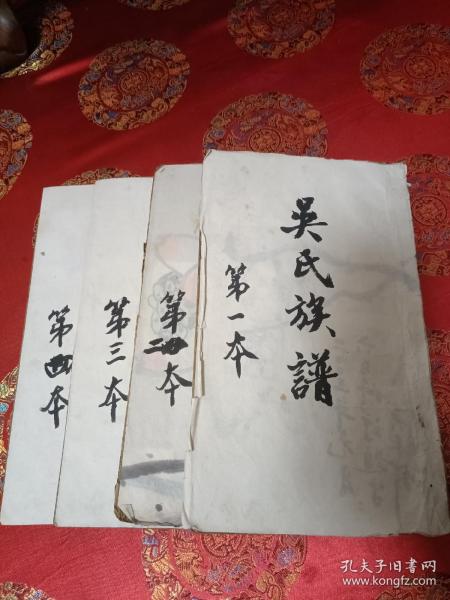 吴氏族譜
第一本
第二本
第三本
第四本
孔夫子旧书网
www.kongfz.com